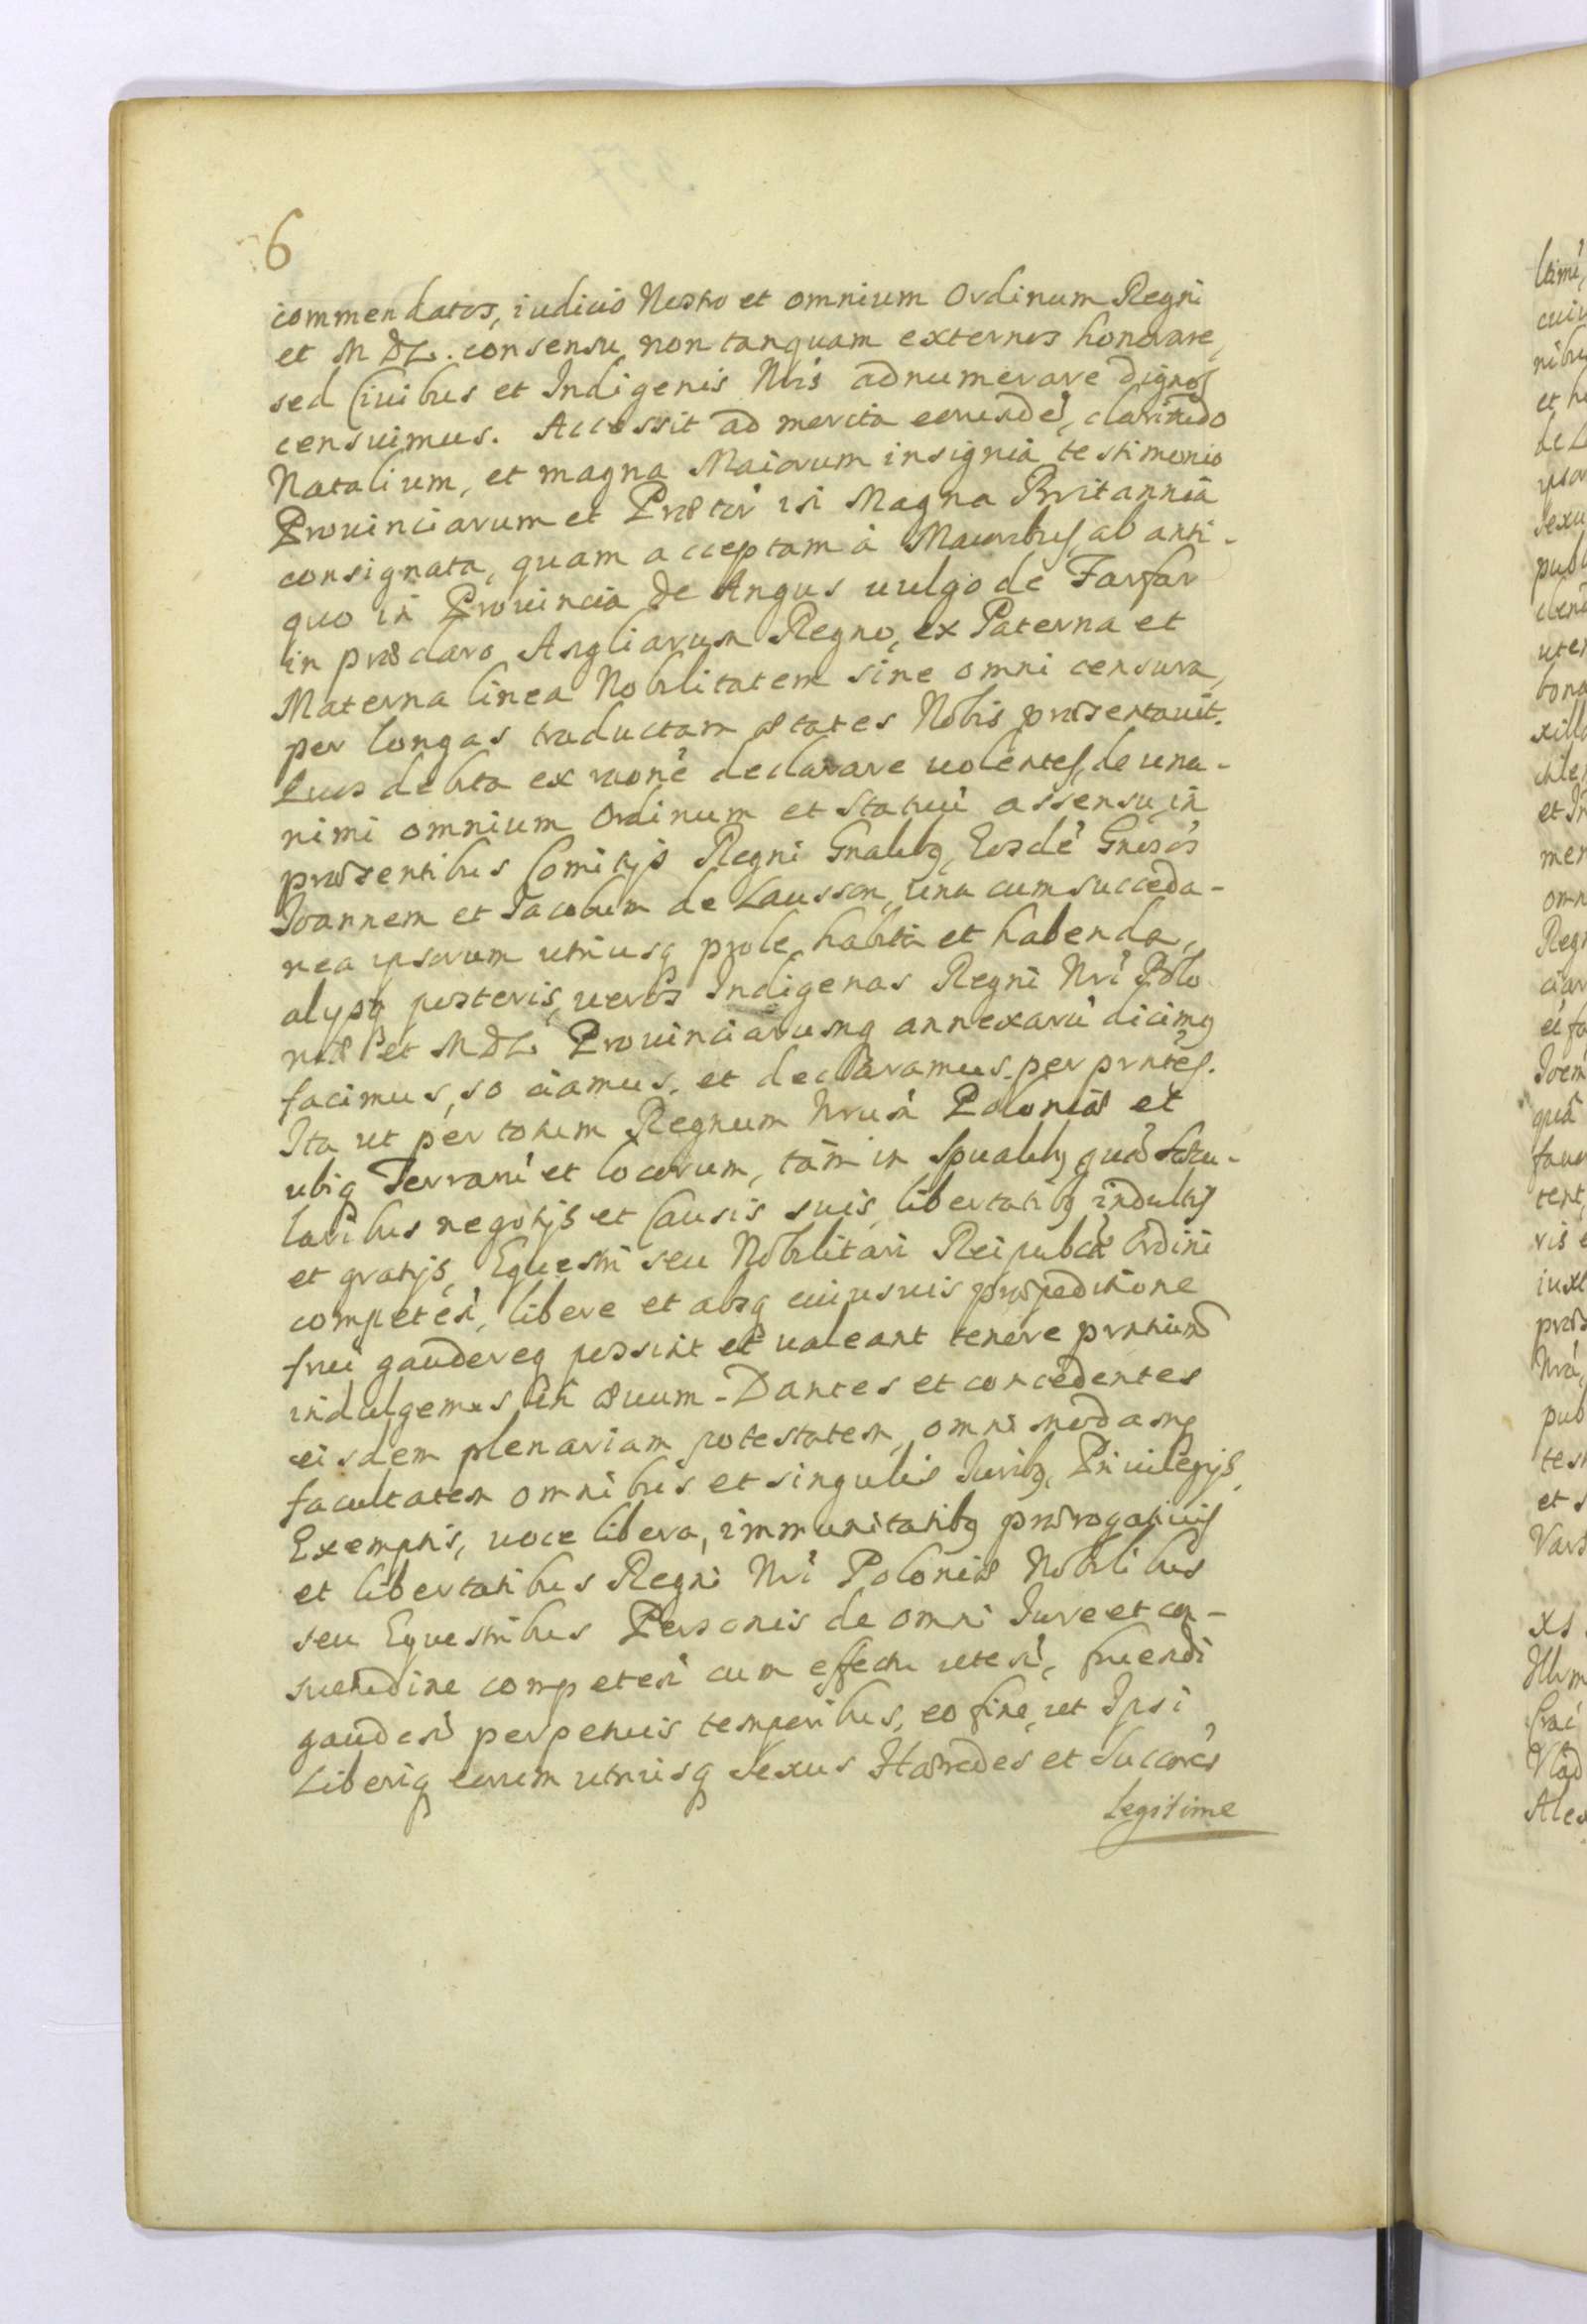 6
commendatos, iudicio Nostro et omnium Ordinum Regni
et M D L. consensu non tanquam externos honorare,
sed Ciuibus et Indigenis Nris adnumerare dignos
censuimus. Accessit ad merita eorundé, claritudo
Natalium, et magna Maiorum insignia testimonio
Prouinciarum et Prætor in Magna Britannia
consignata, quam acceptam à Maioribus ab anti-
quo in Prouincia de Angus uulgo de Farfar
in præclaro Angliarum Regno, ex Paterna et
Materna linea Nobilitatem sine omni censura,
per longas traductam ætates Nobis præsentauit.
Quos debita ex raone declarare uolentes, de una-
nimi omnium Ordinum et Statuú assensu, in
præsentibus Comitijs Regni Gnalibq, Eosdé Gnosos
Joannem et Jacobum de Lausson, una cum succeda-
nea ipsorum utriusq prole habita et habenda,
alijsq posteris, ueros Indigenas Regni Nri Polo
niæ et M D L. Prouinciarumq annexarú dicimq
facimus, sociamus, et declaramus per prntes.
Ita ut per totum Regnum Nrum Poloniæ et
ubiq Terrarú et locorum, tam in Spualibq quá Sæcu-
laribus negotijs et Causis suis, libertatibq indultis
et gratijs, Equestri seu Nobilitari Reipubcæ Ordini
competeń, libere et absq cuiusuis præpeditione
frui gaudereq possint et ualeant tenore prntium
indulgemus in æuum. Dantes et concedentes
eisdem plenariam potestatem, omnimodamq
facultatem omnibus et singulis Juribq, Priuilegijs,
Exemptis, uoce libera, immunitatibq prærogatiuis
et libertatibus Regni Nri Poloniæ Nobilibus
seu Equestribus Personis de omni Jure et con-
suetudine competeń cum effectu uteń, fruendi
gaudeń perpetuis temporibus, eo fine, ut Ipsi
Liberiq eorum utriusq Sexus Hæredes et Succores
Legitime